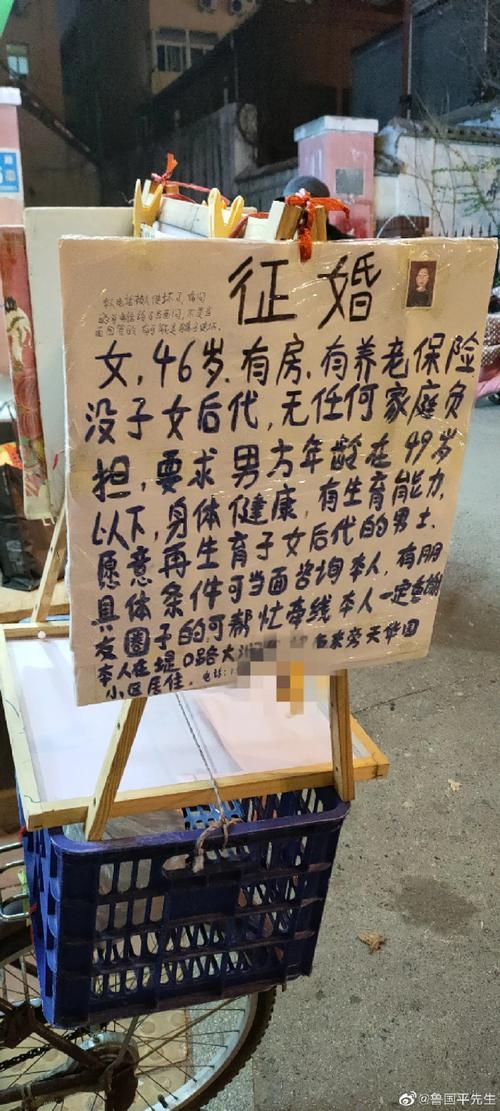 征婚
女,46岁.有房.有养老保险
没子女后代,无任何家庭负
担,要求男方年龄在49岁
以下,身体健康,有生育能力.
愿意再生育子女后代的男士.
具体条件可当面咨询本人,有朋
友圈子的可帮忙牵线本人一定重谢
本人在堤口路大 旁天华园
小区居住. 电话:1
@鲁国平先生